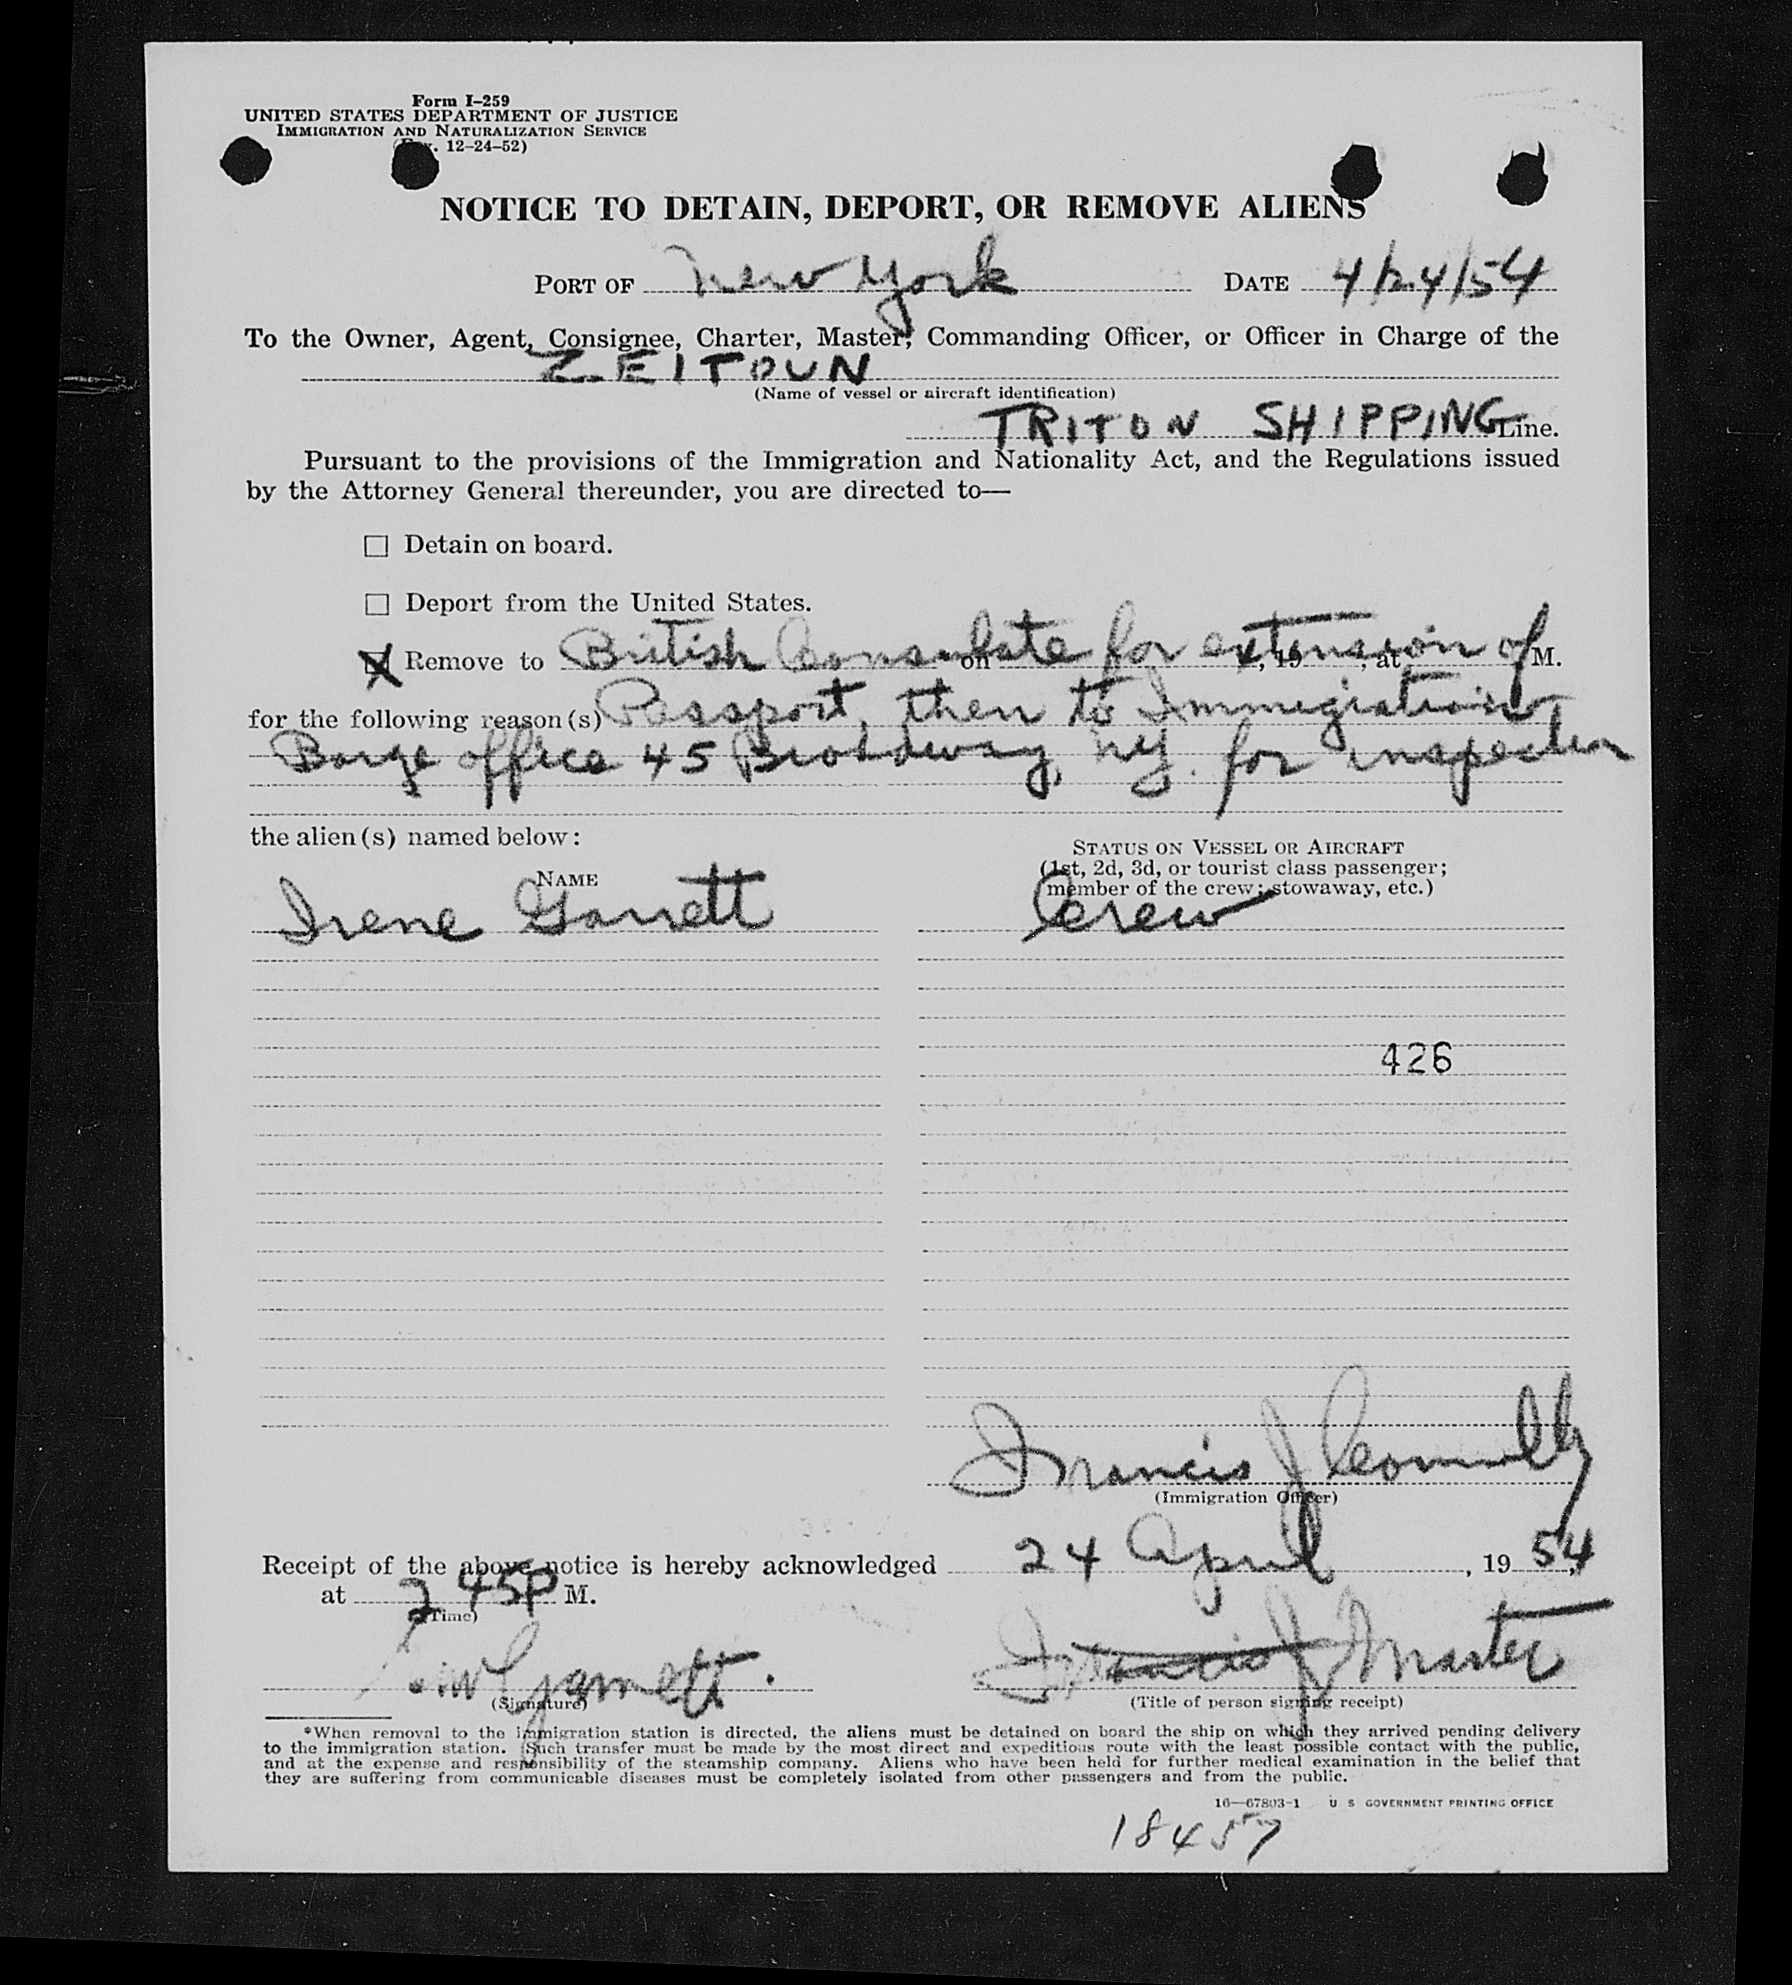 Form I-259
UNITED STATES DEPARTMENT OF JUSTICE
IMMIGRATION AND NATURALIZATION SERVICE
(Rev. 12-24-52)
NOTICE TO DETAIN, DEPORT, OR REMOVE ALIENS
PORT OF New York DATE 4/24/54
To the Owner, Agent, Consignee, Charter, Master, Commanding Officer, or Officer in Charge of the
ZEITOUN
(Name of vessel or aircraft identification)
TRITON SHIPPING Line.
Pursuant to the provisions of the Immigration and Nationality Act, and the Regulations issued
by the Attorney General thereunder, you are directed to—
☐ Detain on board.
☐ Deport from the United States.
☒ Remove to British Consulate for extension of on , 19 , at M.
for the following reason(s) Passport, then to Immigration
Barge office 45 Broadway, NY. for inspection
the alien(s) named below:
STATUS ON VESSEL OR AIRCRAFT
(1st, 2d, 3d, or tourist class passenger;
member of the crew; stowaway, etc.)
NAME
Irene Garrett Crew
426
Francis J Connolly
(Immigration Officer)
Receipt of the above notice is hereby acknowledged 24 April, 1954,
at 2 45P M.
(Time)
Francis J Master
(Signature) (Title of person signing receipt)
*When removal to the immigration station is directed, the aliens must be detained on board the ship on which they arrived pending delivery
to the immigration station. Such transfer must be made by the most direct and expeditious route with the least possible contact with the public,
and at the expense and responsibility of the steamship company. Aliens who have been held for further medical examination in the belief that
they are suffering from communicable diseases must be completely isolated from other passengers and from the public.
16—67803-1 U S GOVERNMENT PRINTING OFFICE
18457